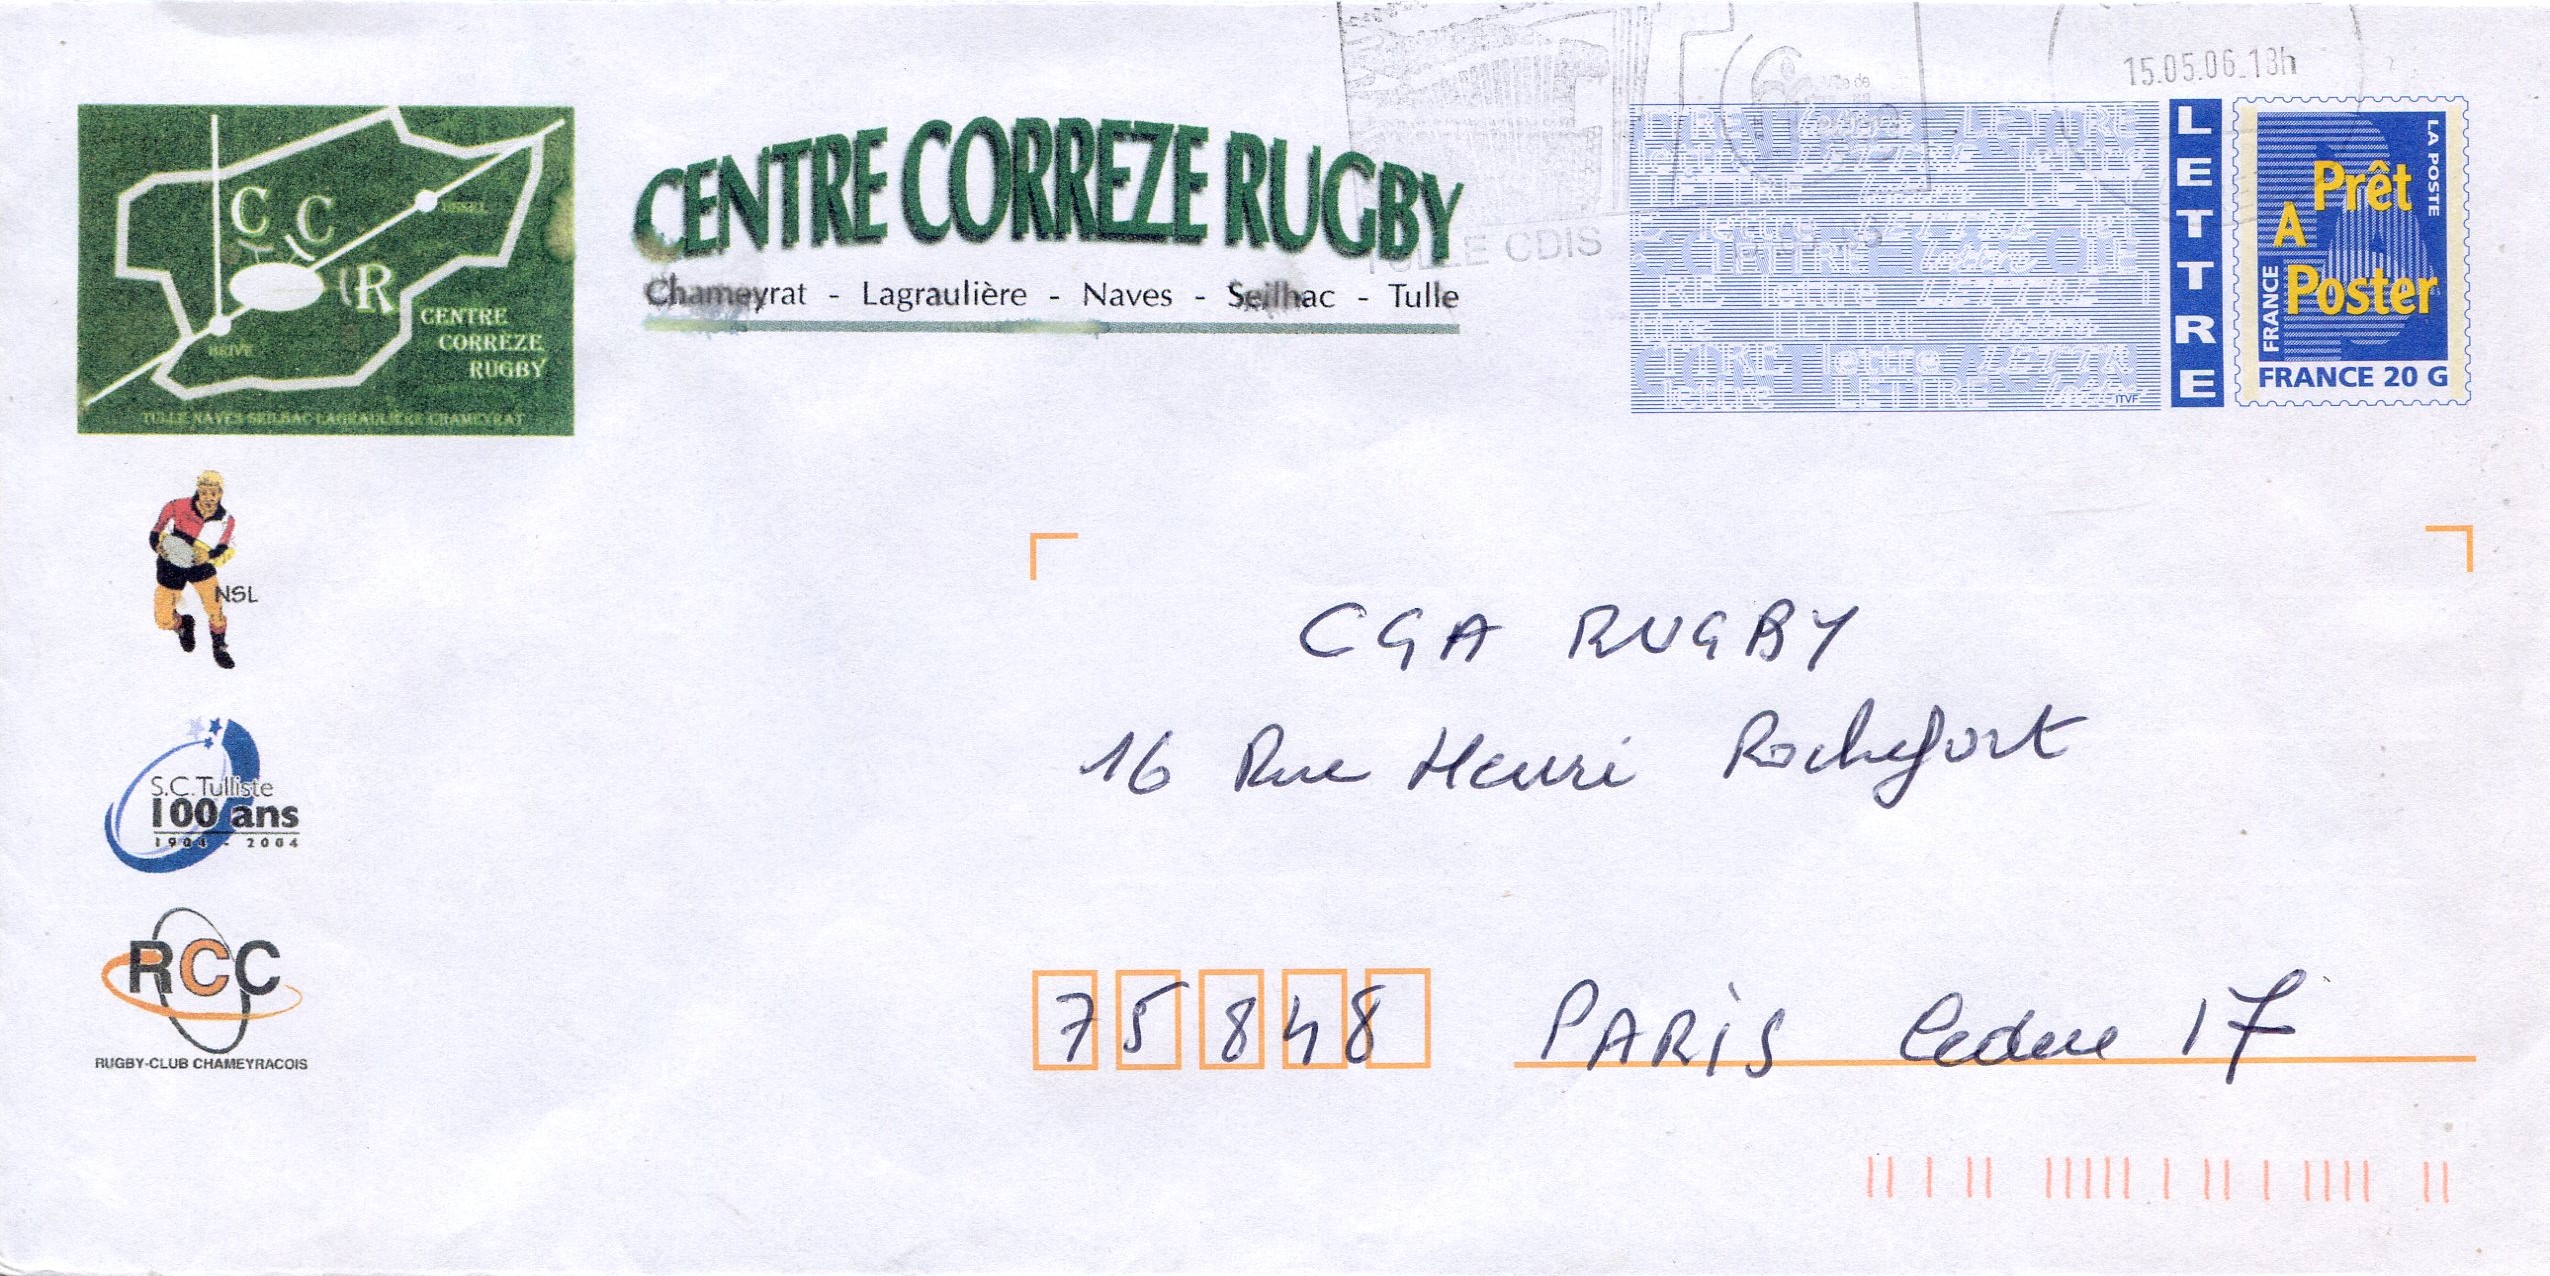 15.05.06.18h
TULLE CDIS
C C R
USSEL
BRIVE
CENTRE
CORRÈZE
RUGBY
TULLE NAVES SEILHAC LAGRAULIÈRE CHAMEYRAT
CENTRE CORREZE RUGBY
Chameyrat - Lagraulière - Naves - Seilhac - Tulle
LETTRE
LA POSTE
Prêt
A
Poster
FRANCE
FRANCE 20 G
ITVF
NSL
S.C. Tulliste
100 ans
1904 - 2004
RCC
RUGBY-CLUB CHAMEYRACOIS
CGA RUGBY
16 Rue Henri Rochefort
75848 PARIS Cedex 17